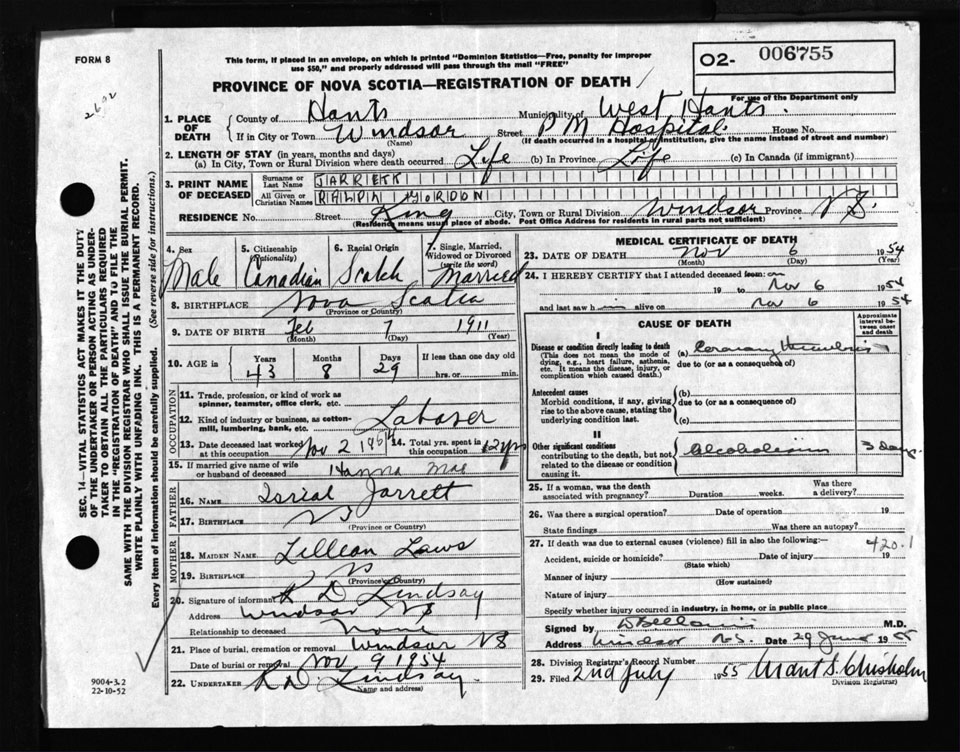 FORM 8
This form, if placed in an envelope, on which is printed "Dominion Statistics—Free, penalty for improper
use $50," and properly addressed will pass through the mail "FREE"
O2- 006755
For use of the Department only
PROVINCE OF NOVA SCOTIA—REGISTRATION OF DEATH
2602
SEC. 14—VITAL STATISTICS ACT MAKES IT THE DUTY
OF THE UNDERTAKER OR PERSON ACTING AS UNDER-
TAKER TO OBTAIN ALL THE PARTICULARS REQUIRED
IN THE "REGISTRATION OF DEATH" AND TO FILE THE
SAME WITH THE DIVISION REGISTRAR WHO SHALL ISSUE THE BURIAL PERMIT.
WRITE PLAINLY WITH UNFADING INK. THIS IS A PERMANENT RECORD.
Every item of information should be carefully supplied. (See reverse side for instructions.)
1. PLACE OF DEATH
County of Hants Municipality of West Hants
If in City or Town Windsor Street P M Hospital House No.
(Name) (If death occurred in a hospital or institution, give the name instead of street and number)
2. LENGTH OF STAY (in years, months and days)
(a) In City, Town or Rural Division where death occurred Life (b) In Province Life (c) In Canada (if immigrant)
3. PRINT NAME OF DECEASED
Surname or Last Name JARRETT
All Given or Christian Names RALPH GORDON
RESIDENCE No. Street King City, Town or Rural Division Windsor Province N S.
(Residence means usual place of abode. Post Office Address for residents in rural parts not sufficient)
4. Sex Male
5. Citizenship (Nationality) Canadian
6. Racial Origin Scotch
7. Single, Married, Widowed or Divorced (write the word) Married
8. BIRTHPLACE Nova Scotia
(Province or Country)
9. DATE OF BIRTH Feb 7 1911
(Month) (Day) (Year)
10. AGE in Years 43 Months 8 Days 29 If less than one day old hrs. or min.
OCCUPATION
11. Trade, profession, or kind of work as
spinner, teamster, office clerk, etc.
12. Kind of industry or business, as cotton-
mill, lumbering, bank, etc. Laborer
13. Date deceased last worked at this occupation Nov 2 1954 14. Total yrs. spent in this occupation 12 yrs
15. If married give name of wife
or husband of deceased Hanna Mae
FATHER
16. NAME Jarrett
17. BIRTHPLACE N S
(Province or Country)
MOTHER
18. MAIDEN NAME Lillian Laws
19. BIRTHPLACE N S
(Province or Country)
20. Signature of informant R D Lindsay
Address Windsor N S
Relationship to deceased None
21. Place of burial, cremation or removal Windsor N S
Date of burial or removal Nov 9 1954
22. UNDERTAKER R. D. Lindsay
(Name and address)
9004-3.2
22-10-52
MEDICAL CERTIFICATE OF DEATH
23. DATE OF DEATH Nov 6 1954
(Month) (Day) (Year)
24. I HEREBY CERTIFY that I attended deceased from on
19 to Nov 6 1954
and last saw him alive on Nov 6 1954
CAUSE OF DEATH
Approximate interval between onset and death
I
Disease or condition directly leading to death (a) Coronary Thrombosis
(This does not mean the mode of dying, e.g., heart failure, asthenia, etc. It means the disease, injury, or complication which caused death.)
due to (or as a consequence of)
Antecedent causes
Morbid conditions, if any, giving rise to the above cause, stating the underlying condition last.
(b)
due to (or as a consequence of)
(c)
II
Other significant conditions
contributing to the death, but not related to the disease or condition causing it.
Alcoholism 3 days
25. If a woman, was the death associated with pregnancy? Duration weeks. Was there a delivery?
26. Was there a surgical operation? Date of operation 19
State findings Was there an autopsy?
27. If death was due to external causes (violence) fill in also the following:— 420.1
Accident, suicide or homicide? Date of injury 19
(State which)
Manner of injury
(How sustained)
Nature of injury
Specify whether injury occurred in industry, in home, or in public place
Signed by M.D.
Address Windsor N.S. Date 29 June 1955
28. Division Registrar's Record Number
29. Filed 2nd July 1955 Chisholm
Division Registrar)